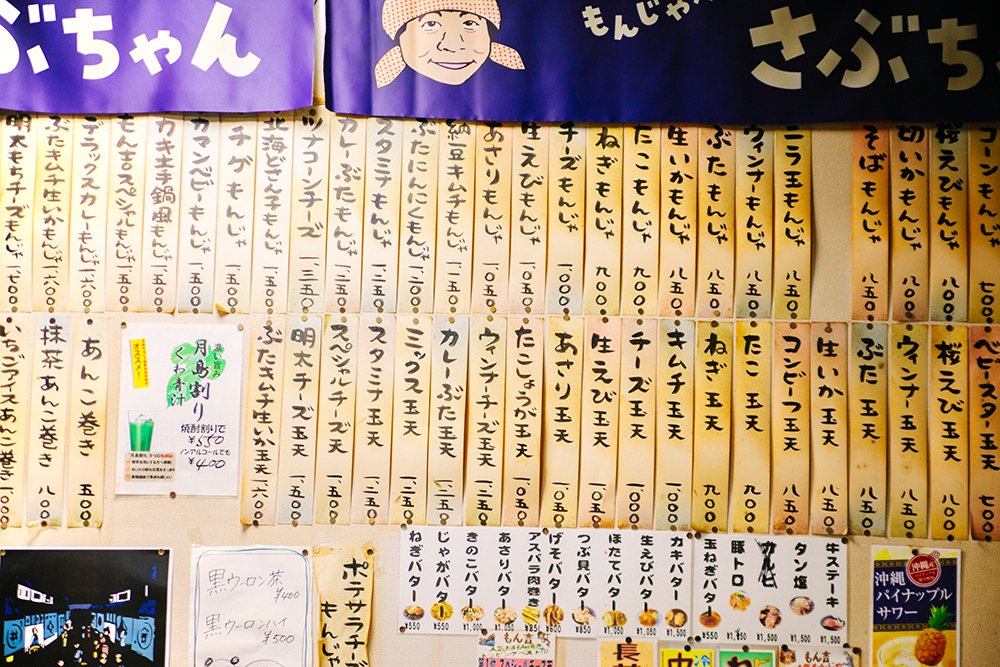 ぶちゃん
もんじゃ
さぶち
コーンもんじゃ 七〇〇
桜えびもんじゃ 八〇〇
切いかもんじゃ 八〇〇
そばもんじゃ 八五〇
ニラ玉もんじゃ 八五〇
ウィンナーもんじゃ 八五〇
ぶたもんじゃ 八五〇
生いかもんじゃ 八五〇
たこもんじゃ 九〇〇
ねぎもんじゃ 九〇〇
チーズもんじゃ 一、〇〇〇
生えびもんじゃ 一、〇五〇
あさりもんじゃ 一、〇五〇
納豆キムチもんじゃ 一、二五〇
ぶたにんにくもんじゃ 一、二〇〇
スタミナもんじゃ 一、三五〇
カレーぶたもんじゃ 一、二五〇
ツナコーンチーズ 一、三五〇
北海どさん子もんじゃ 一、五〇〇
チゲもんじゃ 一、五〇〇
カマンベビーもんじゃ 一、五〇〇
カキ辛子鍋風もんじゃ 一、五〇〇
もん吉スペシャルもんじゃ 一、五〇〇
デラックスカレーもんじゃ 一、六〇〇
ぶたキムチ生いかもんじゃ 一、六〇〇
明太もちチーズもんじゃ 一、七〇〇
ベビースター玉天 七〇〇
桜えび玉天 八〇〇
ウィンナー玉天 八五〇
ぶた玉天 八五〇
生いか玉天 八五〇
コンビーフ玉天 八五〇
たこ玉天 九〇〇
ねぎ玉天 九〇〇
キムチ玉天 一、〇〇〇
チーズ玉天 一、〇〇〇
生えび玉天 一、〇五〇
あさり玉天 一、〇五〇
たこしょうが玉天 一、〇五〇
ウィンチーズ玉天 一、二五〇
カレーぶた玉天 一、二五〇
ミックス玉天 一、三五〇
スタミナ玉天 一、三五〇
スペシャルチーズ玉天 一、五〇〇
明太チーズ玉天 一、五〇〇
ぶたキムチ生いか玉天 一、六〇〇
オススメー
濃い旨み
月島割り
くわ青汁
焼酎割りで
¥550
ノンアルコールでも
¥400
あんこ巻き 五〇〇
抹茶あんこ巻き 八〇〇
いちごアイスあんこ巻き 一、〇〇〇
黒ウーロン茶
¥400
黒ウーロンハイ
¥500
ポテサラチ
もん吉風
牛ステーキ ¥1,500
タン塩 ¥1,500
豚トロ
玉ねぎバター ¥550
カキバター
生えびバター
ほたてバター
つぶ貝バター
げそバター
アスパラ肉巻き
あさりバター
きのこバター
じゃがバター ¥550
ねぎバター ¥550
もん吉
沖縄産
沖縄
パイナップル
サワー